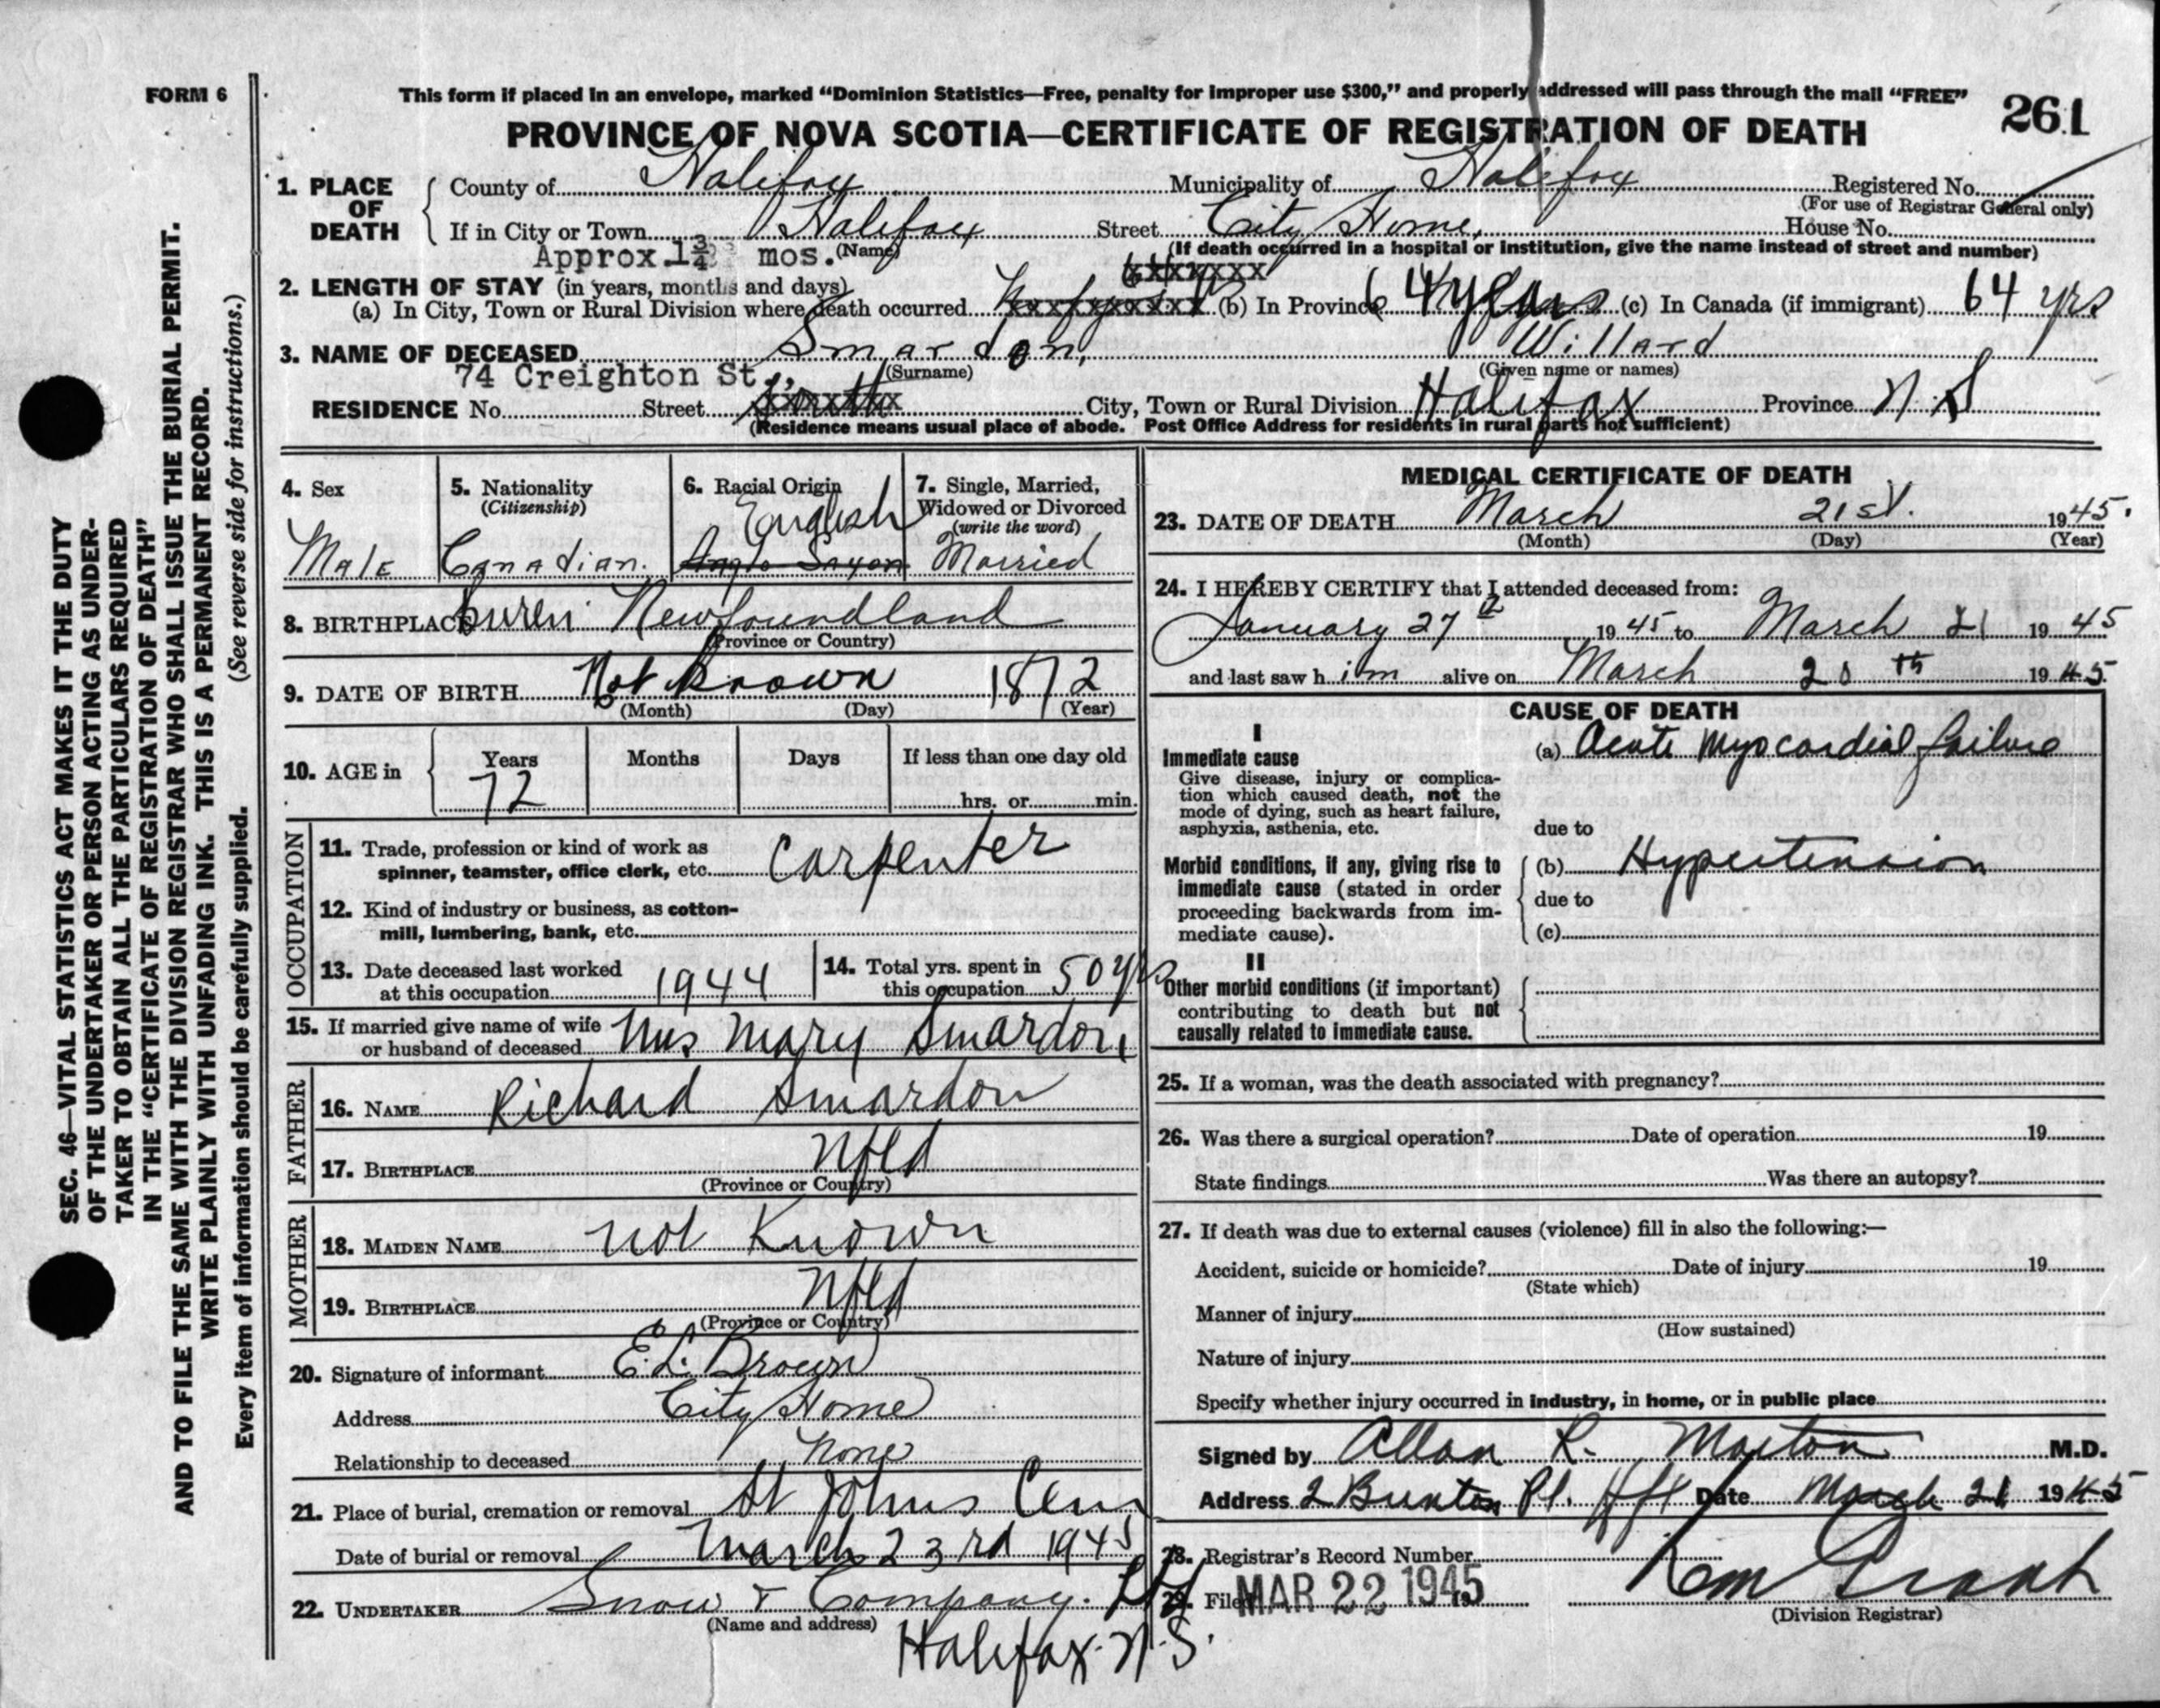 FORM 6
This form if placed in an envelope, marked “Dominion Statistics—Free, penalty for improper use $300,” and properly addressed will pass through the mail “FREE”
261
PROVINCE OF NOVA SCOTIA—CERTIFICATE OF REGISTRATION OF DEATH
1. PLACE OF DEATH
County of Halifax Municipality of Halifax Registered No.
(For use of Registrar General only)
If in City or Town Halifax Street City Home. House No.
(Name) (If death occurred in a hospital or institution, give the name instead of street and number)
Approx. 1¾ mos.
2. LENGTH OF STAY (in years, months and days)
(a) In City, Town or Rural Division where death occurred (b) In Province 64 years (c) In Canada (if immigrant) 64 yrs
3. NAME OF DECEASED Smardon, Willard
(Surname) (Given name or names)
74 Creighton St.,
RESIDENCE No. Street City, Town or Rural Division Halifax Province N.S
(Residence means usual place of abode. Post Office Address for residents in rural parts not sufficient)
4. Sex
Male
5. Nationality
(Citizenship)
Canadian.
6. Racial Origin
English
Anglo Saxon
7. Single, Married,
Widowed or Divorced
(write the word)
Married
8. BIRTHPLACE Newfoundland
(Province or Country)
9. DATE OF BIRTH Not known 1872
(Month) (Day) (Year)
10. AGE in Years Months Days If less than one day old
72 hrs. or min.
OCCUPATION
11. Trade, profession or kind of work as
spinner, teamster, office clerk, etc. Carpenter
12. Kind of industry or business, as cotton-
mill, lumbering, bank, etc.
13. Date deceased last worked
at this occupation 1944
14. Total yrs. spent in
this occupation 50 yrs
15. If married give name of wife
or husband of deceased Mrs Mary Smardon
FATHER
16. NAME Richard Smardon
17. BIRTHPLACE Nfld
(Province or Country)
MOTHER
18. MAIDEN NAME not Known
19. BIRTHPLACE Nfld
(Province or Country)
20. Signature of informant E. L. Brown
Address City Home
Relationship to deceased None
21. Place of burial, cremation or removal St Johns Cem
Date of burial or removal March 23rd 1945
22. UNDERTAKER Snow & Company. Ltd
(Name and address)
Halifax. N.S.
MEDICAL CERTIFICATE OF DEATH
23. DATE OF DEATH March 21st. 1945.
(Month) (Day) (Year)
24. I HEREBY CERTIFY that I attended deceased from:
January 27th 1945 to March 21 1945
and last saw him alive on March 20th 1945
CAUSE OF DEATH
I
Immediate cause
Give disease, injury or complica-
tion which caused death, not the
mode of dying, such as heart failure,
asphyxia, asthenia, etc.
(a) Acute Myocardial failure
due to
Morbid conditions, if any, giving rise to
immediate cause (stated in order
proceeding backwards from im-
mediate cause).
(b) Hypertension
due to
(c)
II
Other morbid conditions (if important)
contributing to death but not
causally related to immediate cause.
25. If a woman, was the death associated with pregnancy?
26. Was there a surgical operation? Date of operation 19
State findings Was there an autopsy?
27. If death was due to external causes (violence) fill in also the following:—
Accident, suicide or homicide? Date of injury 19
(State which)
Manner of injury
(How sustained)
Nature of injury
Specify whether injury occurred in industry, in home, or in public place
Signed by Allan R. Morton M.D.
Address 2 Pl. Hfx Date March 21 1945
28. Registrar's Record Number
29. Filed MAR 22 1945
(Division Registrar)
SEC. 46—VITAL STATISTICS ACT MAKES IT THE DUTY
OF THE UNDERTAKER OR PERSON ACTING AS UNDER-
TAKER TO OBTAIN ALL THE PARTICULARS REQUIRED
IN THE “CERTIFICATE OF REGISTRATION OF DEATH”
AND TO FILE THE SAME WITH THE DIVISION REGISTRAR WHO SHALL ISSUE THE BURIAL PERMIT.
WRITE PLAINLY WITH UNFADING INK. THIS IS A PERMANENT RECORD.
Every item of information should be carefully supplied. (See reverse side for instructions.)